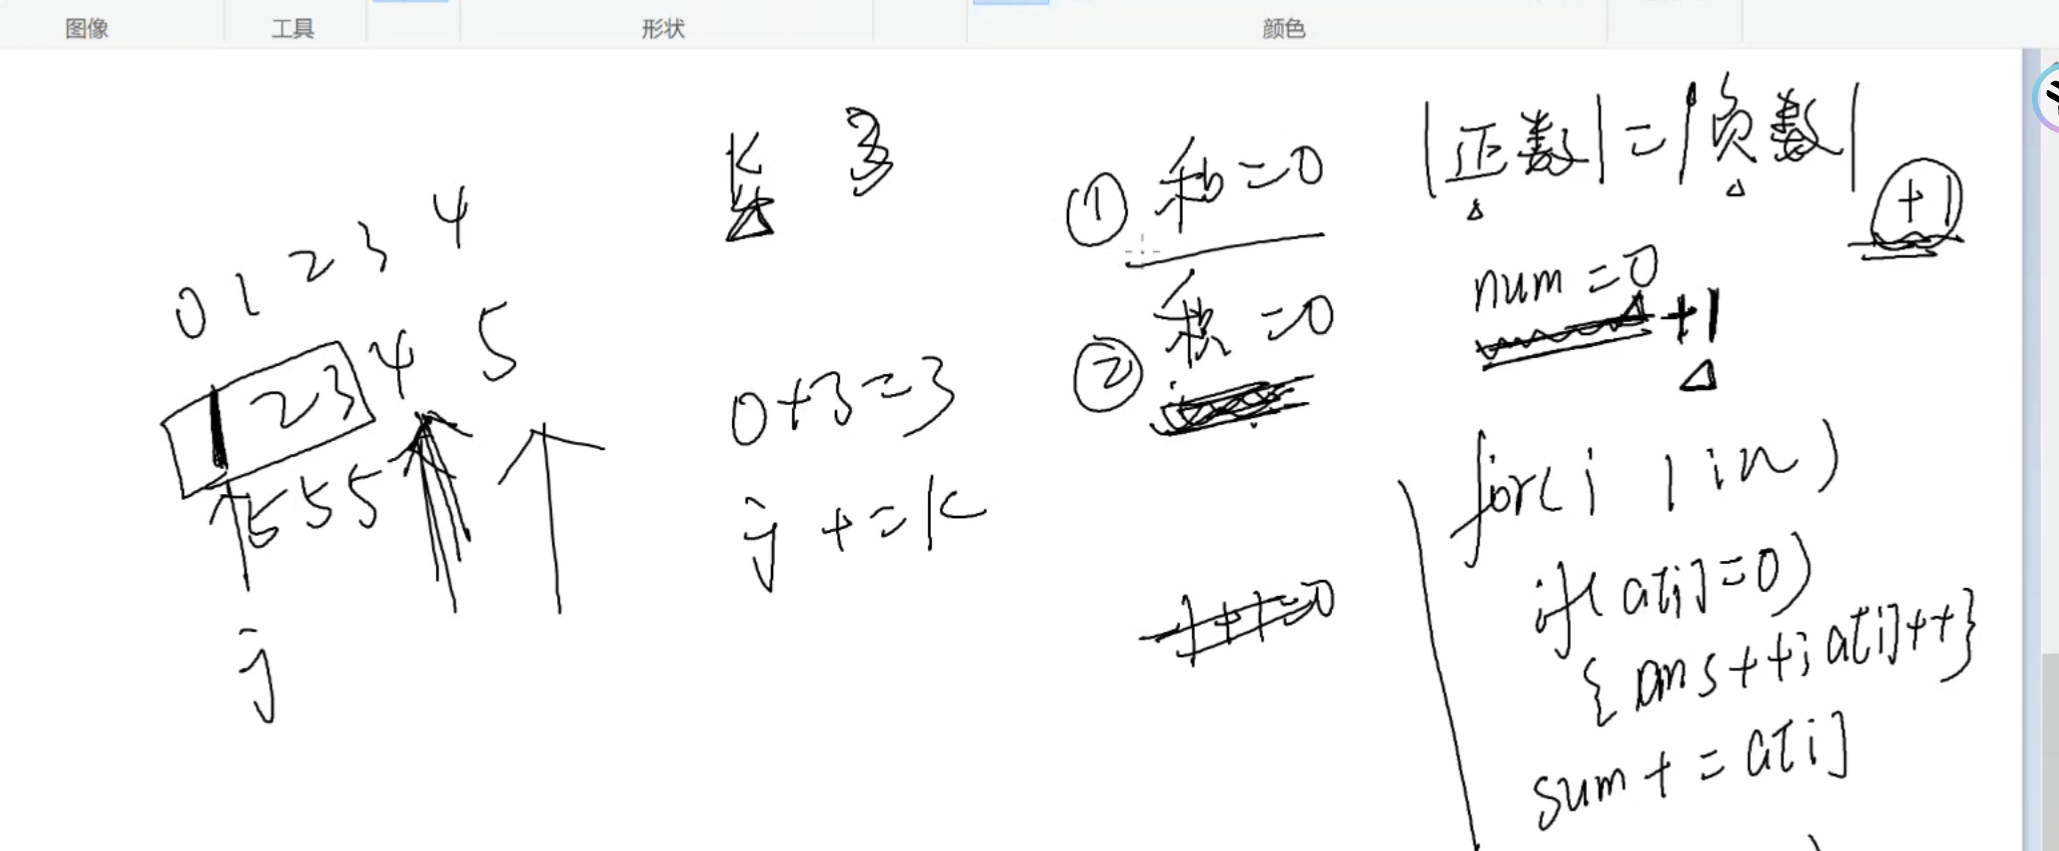 图像 工具 形状 颜色
0 1 2 3 4
1 2 3 4 5
5 5 5
j
k 3
0+3=3
j +=k
① 和=0
② 积=0
1+1=0
|正数|=|负数| +1
num=0 +1
for( i 1 i n )
if( a[i]=0)
{ ans++; a[i]++}
sum+=a[i]
)